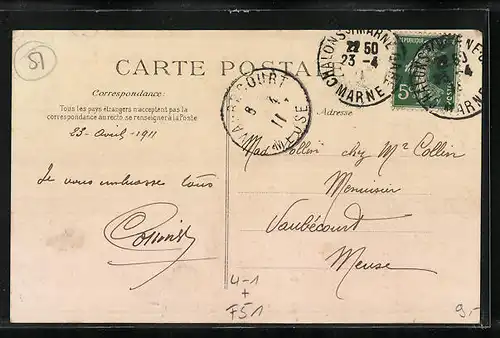 51
CARTE POSTALE
Correspondance
Tous les pays étrangers n'acceptent pas la
correspondance au recto, se renseigner à la Poste
Adresse
23 - Avril - 1911
Je vous embrasse tous
VAUBECOURT
8 - 4
11
MEUSE
CHALONS S MARNE
22 50
23 - 4
MARNE
REPUBLIQUE
5c
Mad Collin chez Mr Collin
Menuisier
Vaubécourt
Meuse
4-1
+
F51
9.-